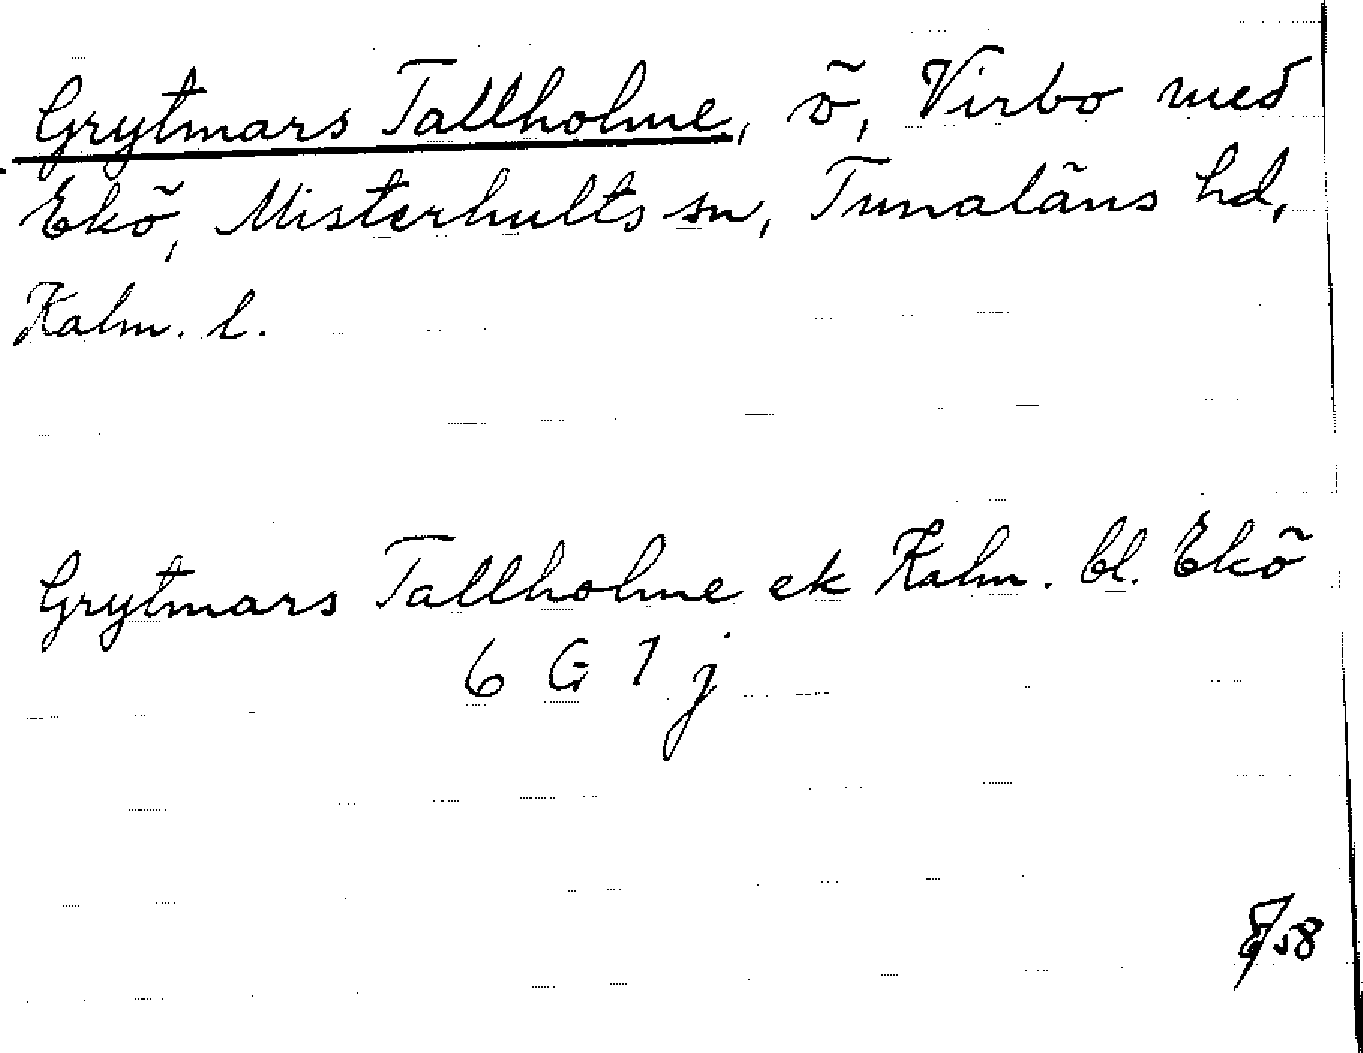 Grytmars Tallholme, ö, Virbo med
Ekö, Misterhults sn, Tunaläns hd,
Kalm. l.
Grytmars Tallholme ek Kalm. bl. Ekö
6 G 7 j
58